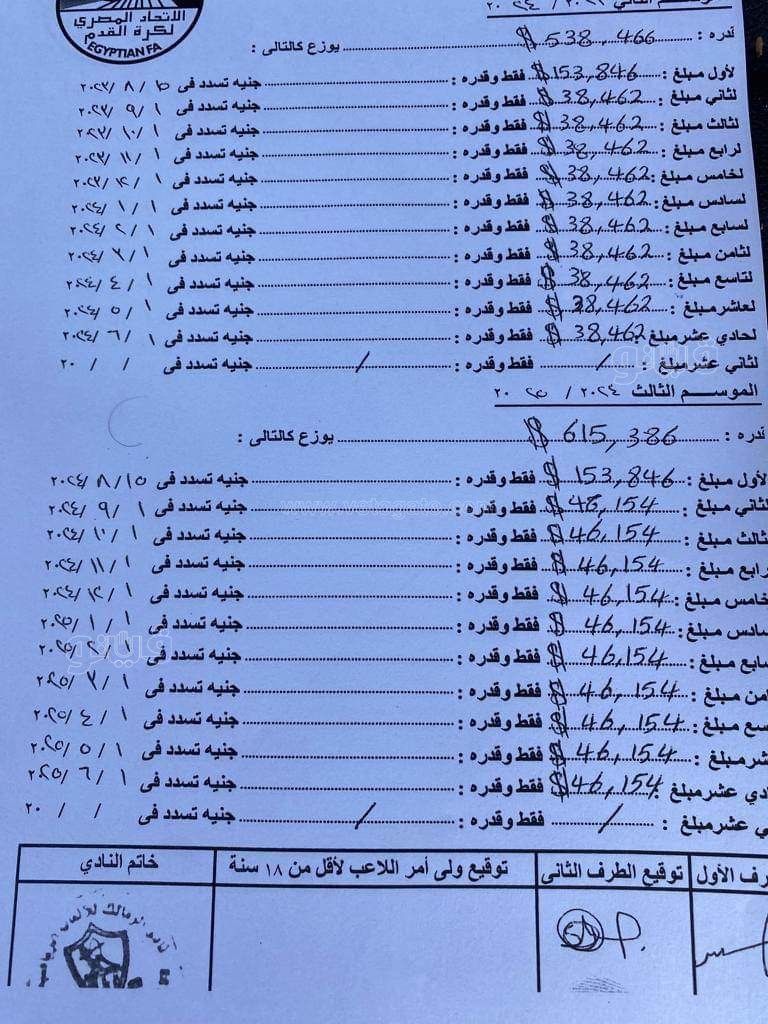 الاتحاد المصري
لكرة القدم
EGYPTIAN FA
قدره : $ 538,466 يوزع كالتالى :
لأول مبلغ : $ 153,846 فقط وقدره : جنيه تسدد فى ١٥ / ٨ / ٢٠٢٣
لثاني مبلغ : $ 38,462 فقط وقدره : جنيه تسدد فى ١ / ٩ / ٢٠٢٣
لثالث مبلغ : $ 38,462 فقط وقدره : جنيه تسدد فى ١ / ١٠ / ٢٠٢٣
لرابع مبلغ : $ 38,462 فقط وقدره : جنيه تسدد فى ١ / ١١ / ٢٠٢٣
لخامس مبلغ : $ 38,462 فقط وقدره : جنيه تسدد فى ١ / ١٢ / ٢٠٢٣
لسادس مبلغ : $ 38,462 فقط وقدره : جنيه تسدد فى ١ / ١ / ٢٠٢٤
لسابع مبلغ : $ 38,462 فقط وقدره : جنيه تسدد فى ١ / ٢ / ٢٠٢٤
لثامن مبلغ : $ 38,462 فقط وقدره : جنيه تسدد فى ١ / ٣ / ٢٠٢٤
لتاسع مبلغ : $ 38,462 فقط وقدره : جنيه تسدد فى ١ / ٤ / ٢٠٢٤
لعاشر مبلغ : $ 38,462 فقط وقدره : جنيه تسدد فى ١ / ٥ / ٢٠٢٤
لحادي عشر مبلغ : $ 38,462 فقط وقدره : جنيه تسدد فى ١ / ٦ / ٢٠٢٤
لثاني عشر مبلغ : / فقط وقدره : / جنيه تسدد فى / / ٢٠
الموسم الثالث ٢٠٢٤ / ٢٠٢٥
قدره : $ 615,386 يوزع كالتالى :
لأول مبلغ : $ 153,846 فقط وقدره : جنيه تسدد فى ١٥ / ٨ / ٢٠٢٤
لثاني مبلغ : $ 46,154 فقط وقدره : جنيه تسدد فى ١ / ٩ / ٢٠٢٤
ثالث مبلغ : $ 46,154 فقط وقدره : جنيه تسدد فى ١ / ١٠ / ٢٠٢٤
رابع مبلغ : $ 46,154 فقط وقدره : جنيه تسدد فى ١ / ١١ / ٢٠٢٤
خامس مبلغ : $ 46,154 فقط وقدره : جنيه تسدد فى ١ / ١٢ / ٢٠٢٤
سادس مبلغ : $ 46,154 فقط وقدره : جنيه تسدد فى ١ / ١ / ٢٠٢٥
سابع مبلغ : $ 46,154 فقط وقدره : جنيه تسدد فى ١ / ٢ / ٢٠٢٥
امن مبلغ : $ 46,154 فقط وقدره : جنيه تسدد فى ١ / ٣ / ٢٠٢٥
سع مبلغ : $ 46,154 فقط وقدره : جنيه تسدد فى ١ / ٤ / ٢٠٢٥
شر مبلغ : $ 46,154 فقط وقدره : جنيه تسدد فى ١ / ٥ / ٢٠٢٥
دي عشر مبلغ : $ 46,154 فقط وقدره : جنيه تسدد فى ١ / ٦ / ٢٠٢٥
ي عشر مبلغ : / فقط وقدره : / جنيه تسدد فى / / ٢٠
رف الأول توقيع الطرف الثانى توقيع ولى أمر اللاعب لأقل من ١٨ سنة خاتم النادي
فيتو